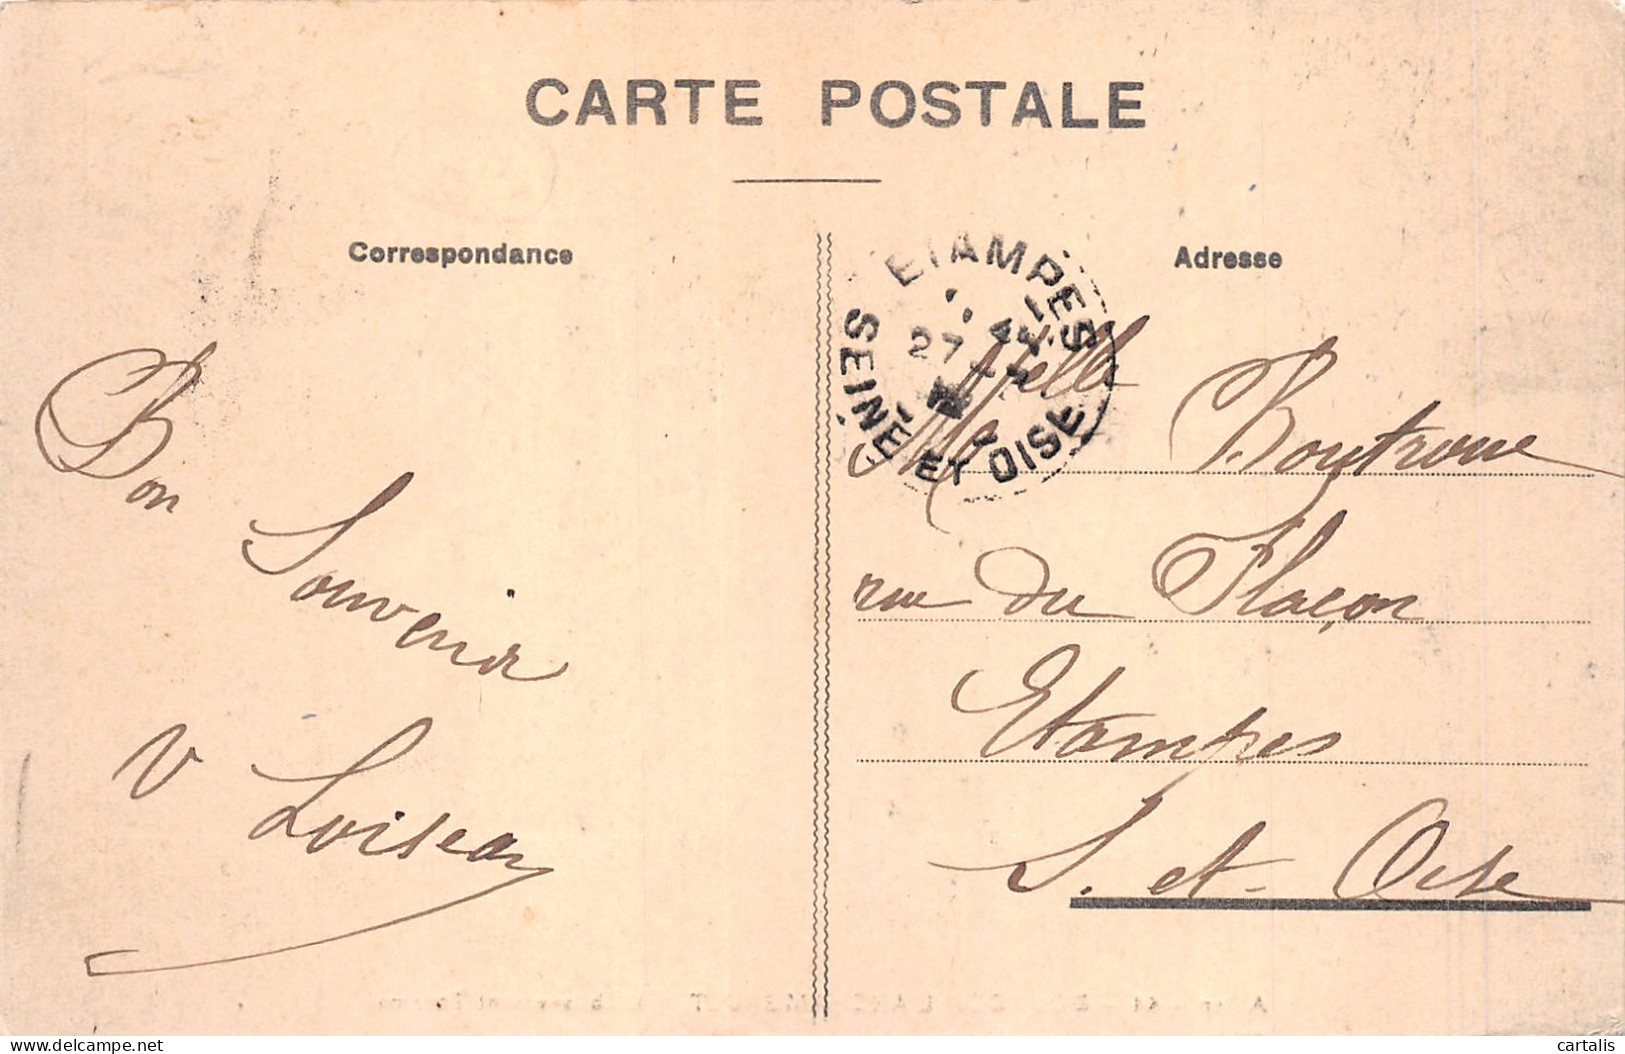 CARTE POSTALE
Correspondance
Adresse
ETAMPES
27
SEINE ET OISE
Bon
Souvenir
V Loiseau
Melle Boutroue
rue du Flacon
Etampes
S. et Oise
delcampe.net
cartalis